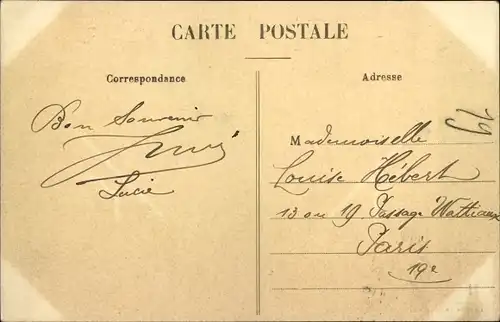 CARTE POSTALE
Correspondance
Bon Souvenir
Lucie
Adresse
Mademoiselle
Louise Hébert
13 ou 19 Passage Wattieaux
Paris
19e